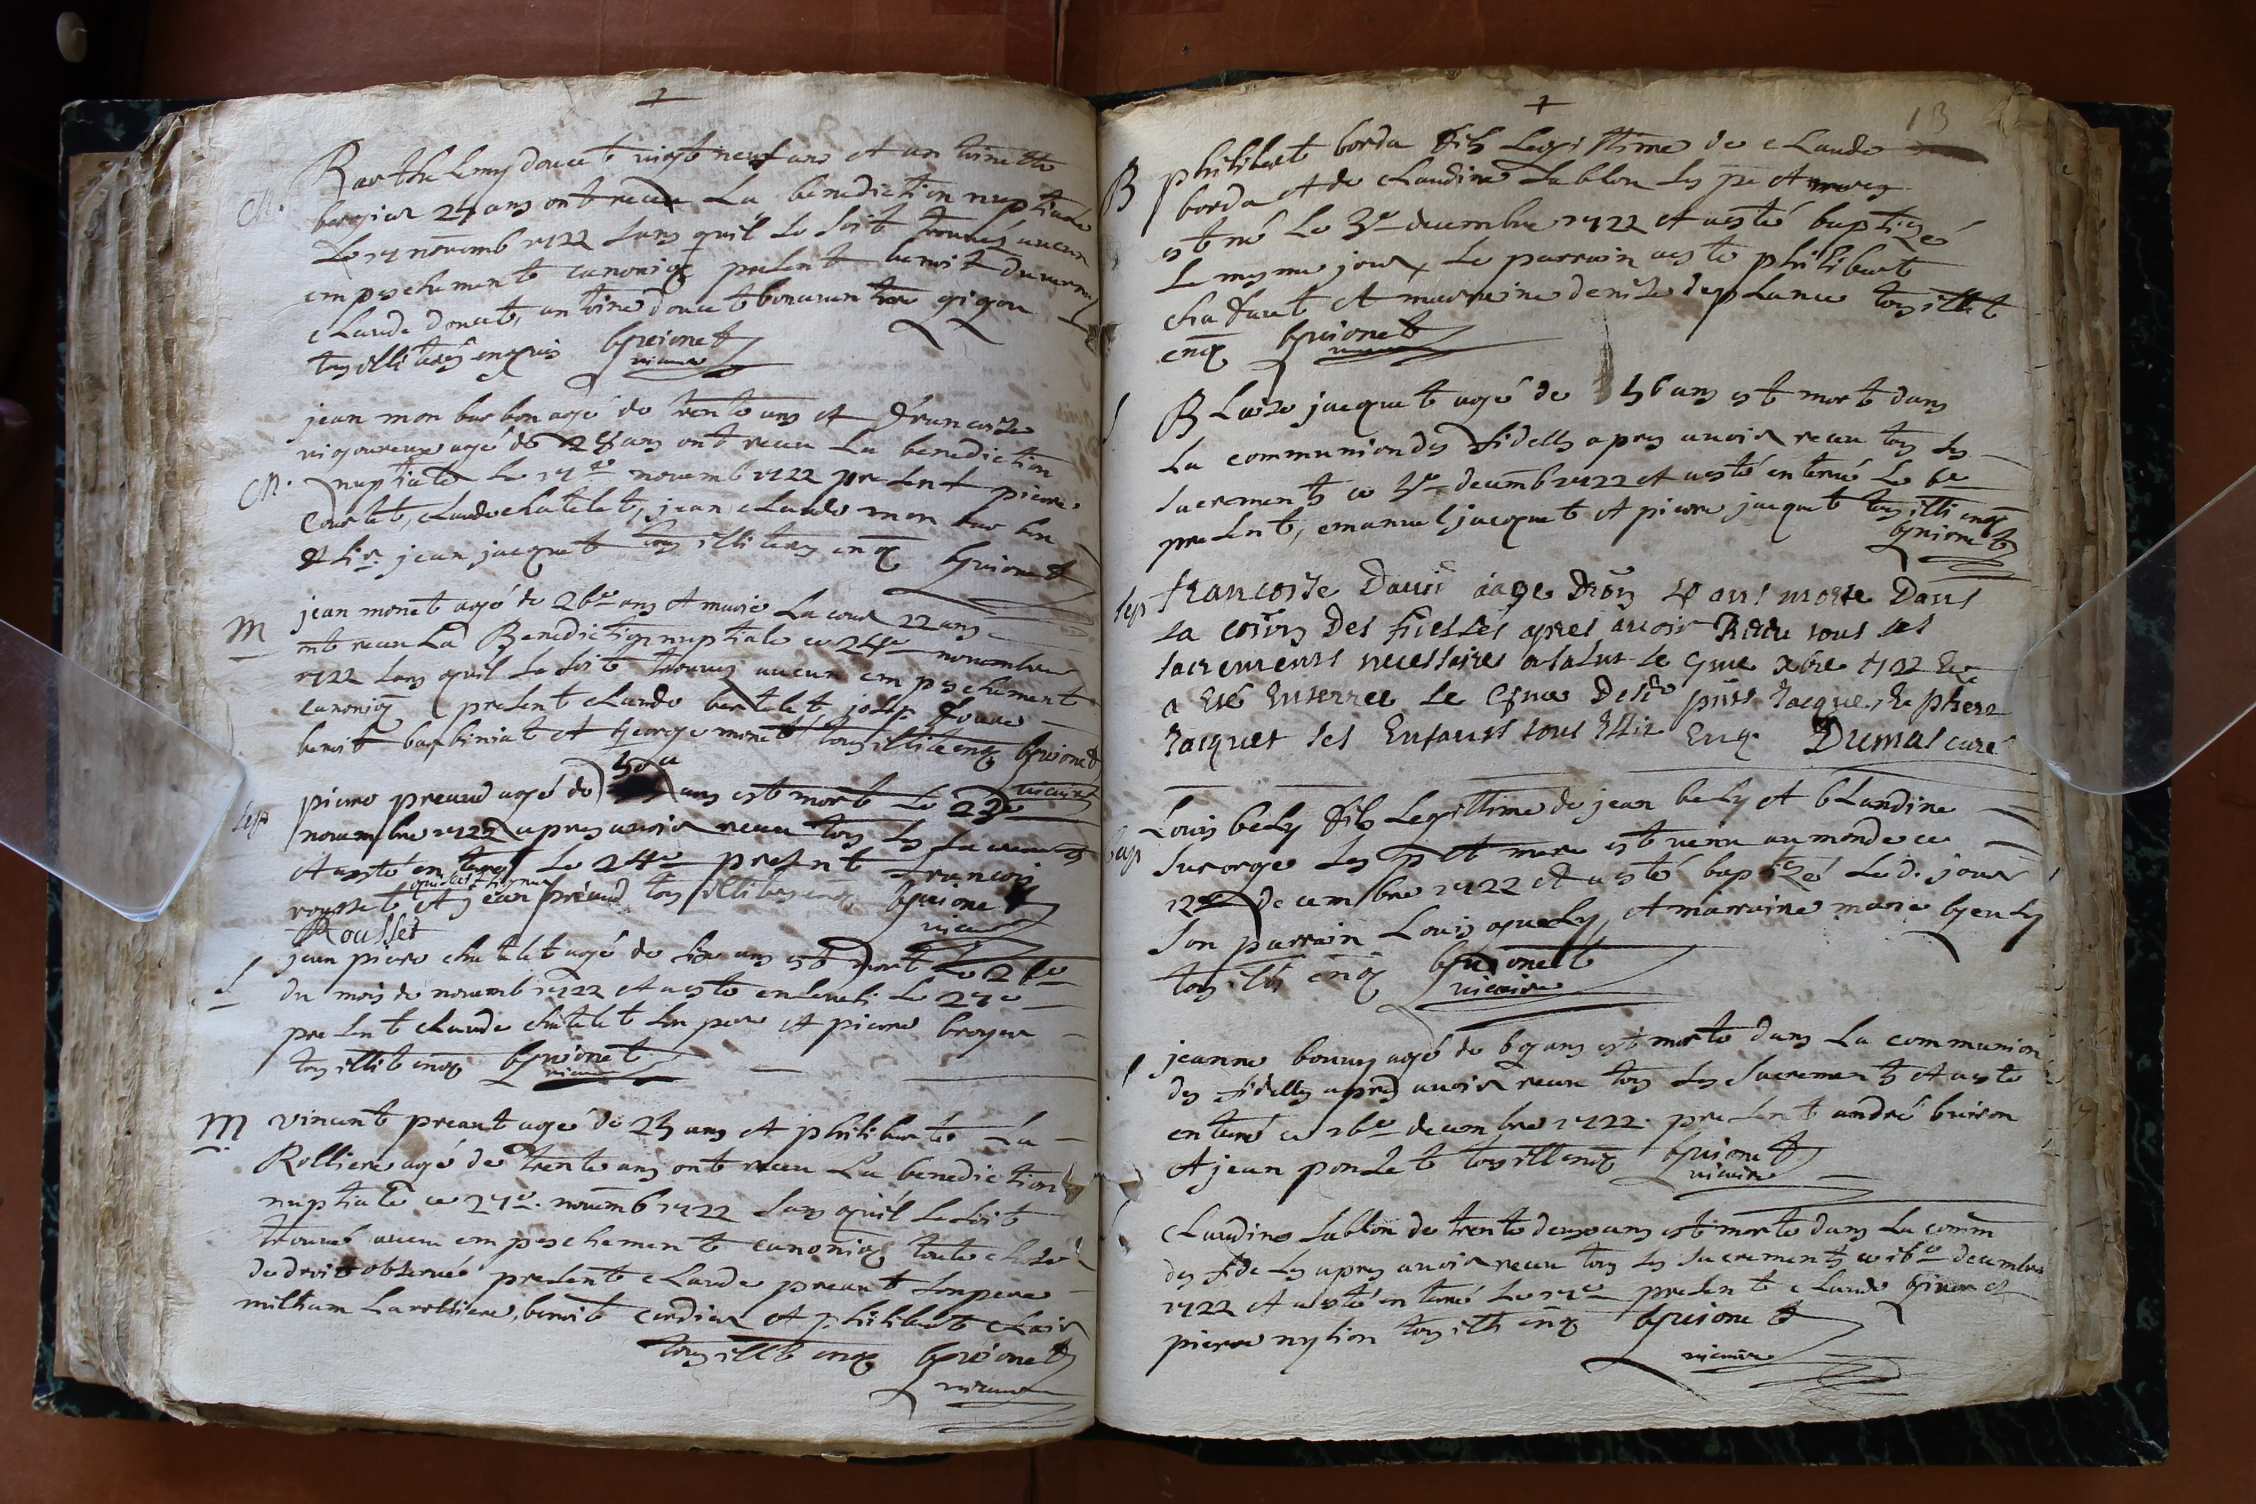 +
M.
Barthelemy doucet vingt neuf ans et antoinette
bergier 24 ans ont receu La benediction nuptiale
Le 17 novemb 1722 sans quil se soit trouvé aucun
empeschement canoniq present benoit
claude doucet, antoine doucet bonaventure gigou
tous illiterés enquis Guionet
vicaire
jean mon barbon agé de trente ans et francoise
vigoureux agé de 28 ans ont receu La benediction
M.
nuptiale Le 17e novemb 1722 present pierre
Courtet, claude chatelet, jean claude mon barbon
et sir. jean jacquet tous illiteres enq Guionet
M
jean monet agé de 26e ans et marie La cour 22 ans
ont receu La Benediction nuptiale ce 24e novembre
1722 sans quil se soit trouvez aucun empeschement
canoniq present claude bertelet josep
benoit barbiniat et George monet tous illite enq Guionet
vicaire
50 a
Sep
pierre preaud agé de ans est mort Le 23e
novembre 1722 apres avoir receu tous Les sacrements
et aesté enteré Le 24e present francois
rousset qui sest signé et jean préaud tous illiteres enq Guionet
Rousset
vicaire
jean piere chatelet agé de six ans est mort Le 26e
S
du mois de novemb 1722 et aesté enseveli Le 27e
present claude chatelet son pere et pierre broyer
tous illit enq Guionet
vicaire
M
vincent preaut agé de 25 ans et philiberte La
Rolliere agé de trente ans ont receu La benediction
nuptiale ce 27e. novemb 1722 sans quil se soit
trouvé aucun empeschement canoniq toute chose
de droit observée present claude preaut son pere
miltham Larolliere, benoit cordier et philibert clair
tous illit enq Guionet
vicaire
+
13
B
philibert borda fils Legittime de claude
borda et de claudine sablon ses pe et meres
est né Le 3e decembre 1722 et aesté baptizé
Le mesme jour, Le parrain aeste philibert
chafaut et marreine denise desplance tous illit
enq Guionet
vicaire
S
Blaise jacquet agé de 56 ans est mort dans
La communion des fidelles apres avoir receu tous Les
sacrements ce 5e decemb 1722 et aesté enterré Le 6e
present, emanuel jacquet et pierre jacquet tous illi enq
Guionet
Sep
francoise Davi agee ans morte Dans
la comn Des fidelles apres avoir Receu tous les
sacrements necessaires asalut le xbre 1722 Et
a Esté Enterree le Desd pnts Jacque, Et pierre
Jacquet ses Enfants tous Enq. Dumas curé
Bap
Louis bely fils Legittime de jean bely et blandine
Surorge ses p et mere est venu au monde ce
12e decembre 1722 et aesté baptizé Led. jour
son parrain Louis aquely, et marraine marie Geuly
tous illi enq Guionet
vicaire
S
jeanne bourg agé de 69 ans est morte dans La communion
des fidelles apres avoir receu tous Les Sacrements et aeste
enterré ce 16e decembre 1722. present andré buiron
et jean ponset tous ill enq Guionet
vicaire
S
Claudine sablon de trente deux ans est morte dans La comm
des fideles apres avoir receu tous Les sacrements ce 16e decembre
1722 et aesté enterré Le 17e present claude et
pierre nyson tous illi enq Guionet
vicaire